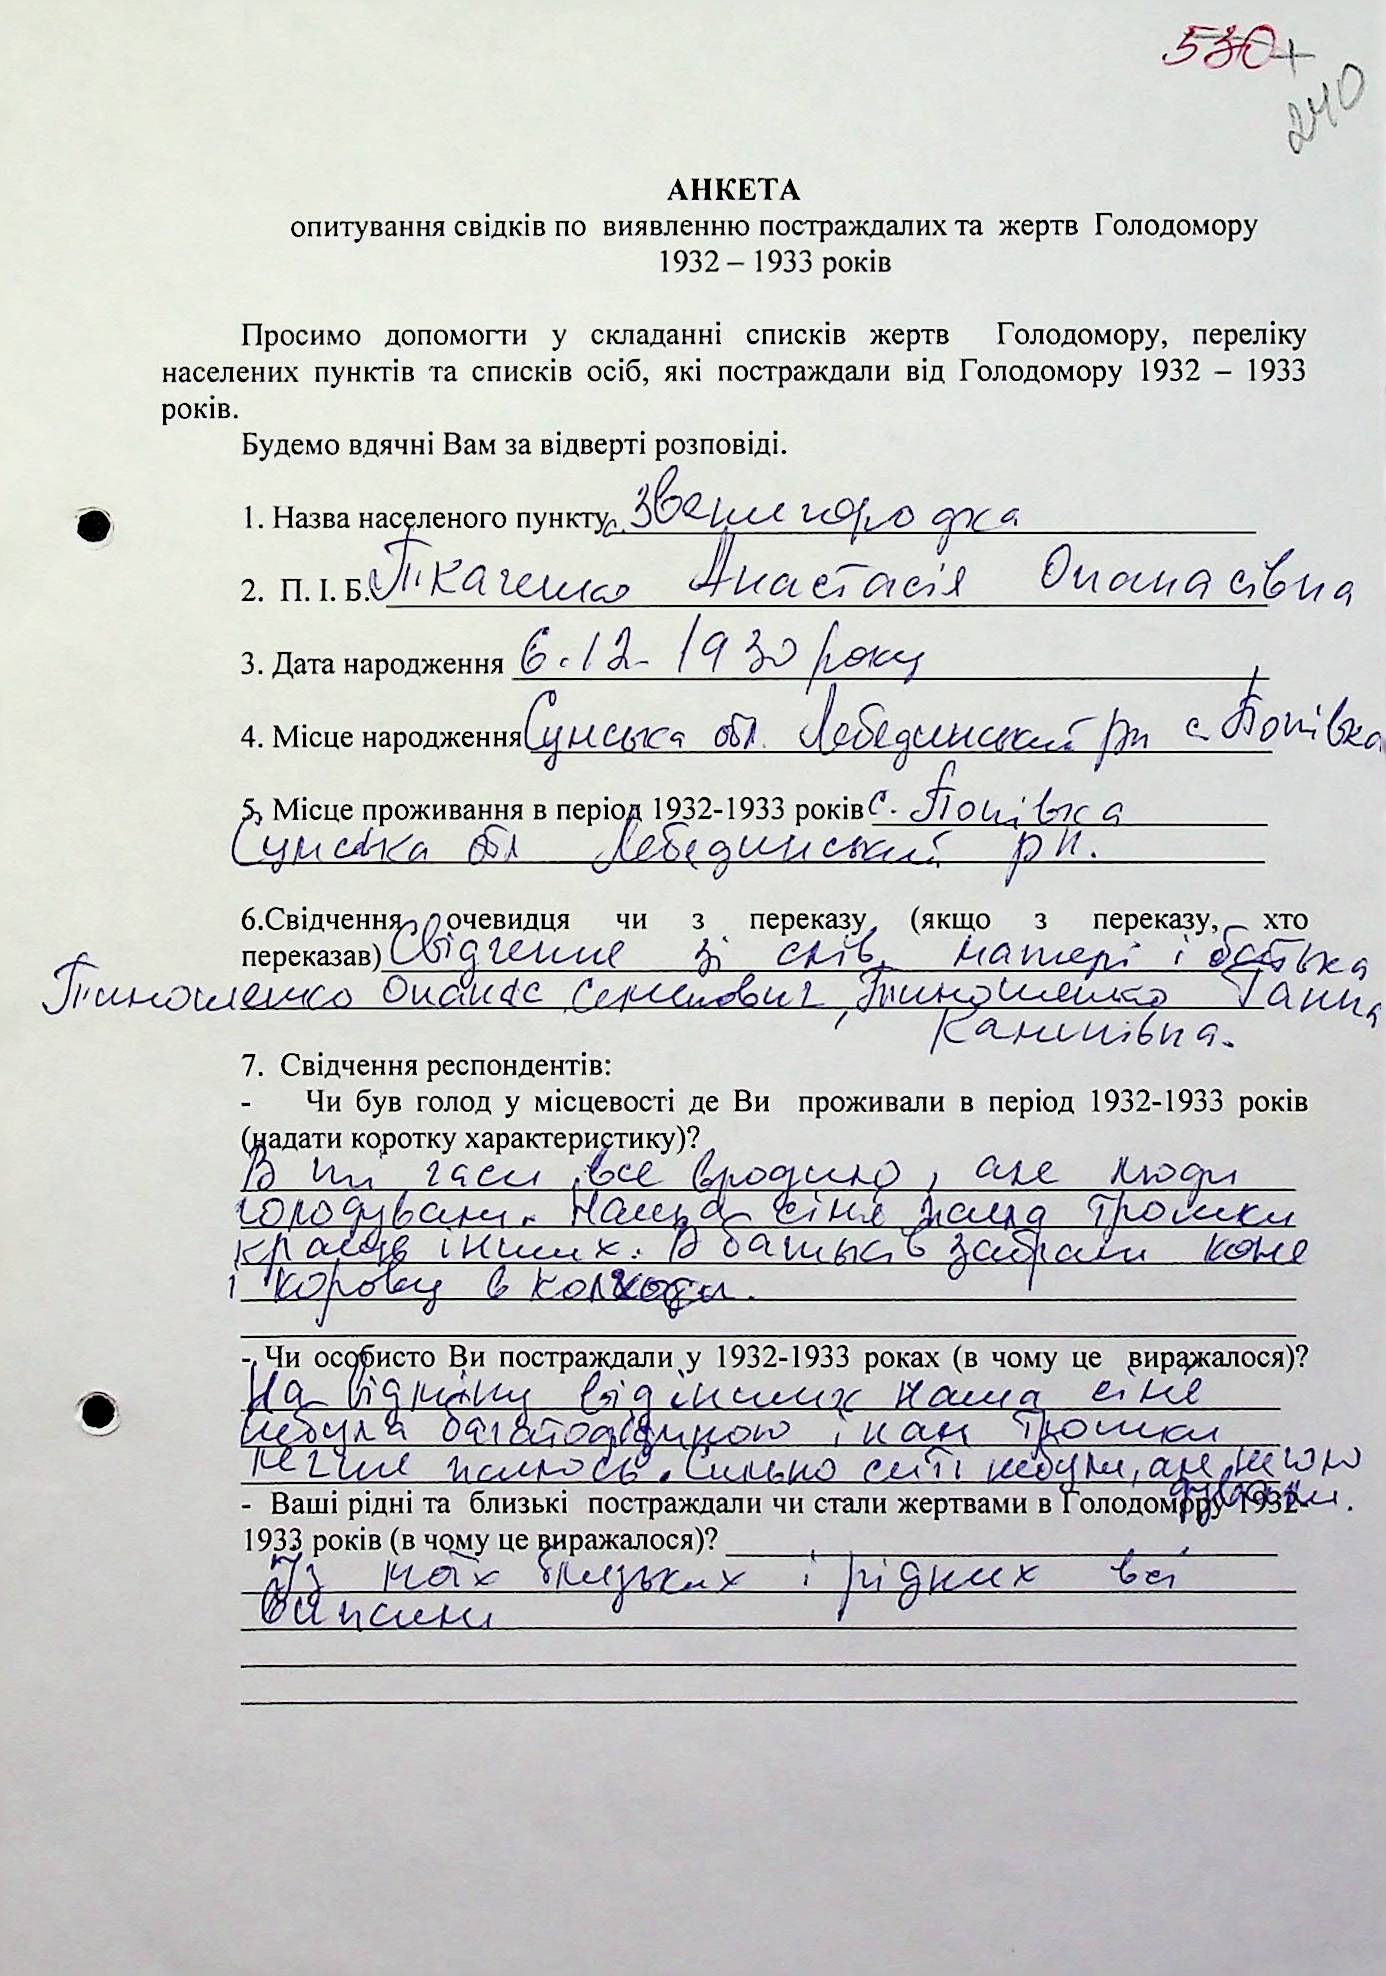 530+
240
АНКЕТА
опитування свідків по виявленню постраждалих та жертв Голодомору
1932 – 1933 років
Просимо допомогти у складанні списків жертв Голодомору, переліку
населених пунктів та списків осіб, які постраждали від Голодомору 1932 – 1933
років.
Будемо вдячні Вам за відверті розповіді.
1. Назва населеного пункту с. Звенигородка
2. П. І. Б. Ткаченко Анастасія Опанасівна
3. Дата народження 6.12-1930 року
4. Місце народження Сумська обл. Лебединський рн с. Попівка
5. Місце проживання в період 1932-1933 років с. Попівка
Сумська обл Лебединський рн.
6.Свідчення очевидця чи з переказу (якщо з переказу, хто
переказав) Свідчення зі слів матері і батька
Тимошенко Опанас Семенович, Тимошенко Ганна
7. Свідчення респондентів:
- Чи був голод у місцевості де Ви проживали в період 1932-1933 років
(надати коротку характеристику)?
В ті часи все вродило, але люди
голодували. Наша сімя жила трошки
краще інших. В батьків забрали коне
і корову в колхози.
- Чи особисто Ви постраждали у 1932-1933 роках (в чому це виражалося)?
На відміну від інших наша сімя
небула багатодітною і нам трошки
легше жилось. Сильно ситі небули, але не голо
дували.
- Ваші рідні та близькі постраждали чи стали жертвами в Голодомору 1932-
1933 років (в чому це виражалося)?
Із моїх близьких і рідних всі
вижили